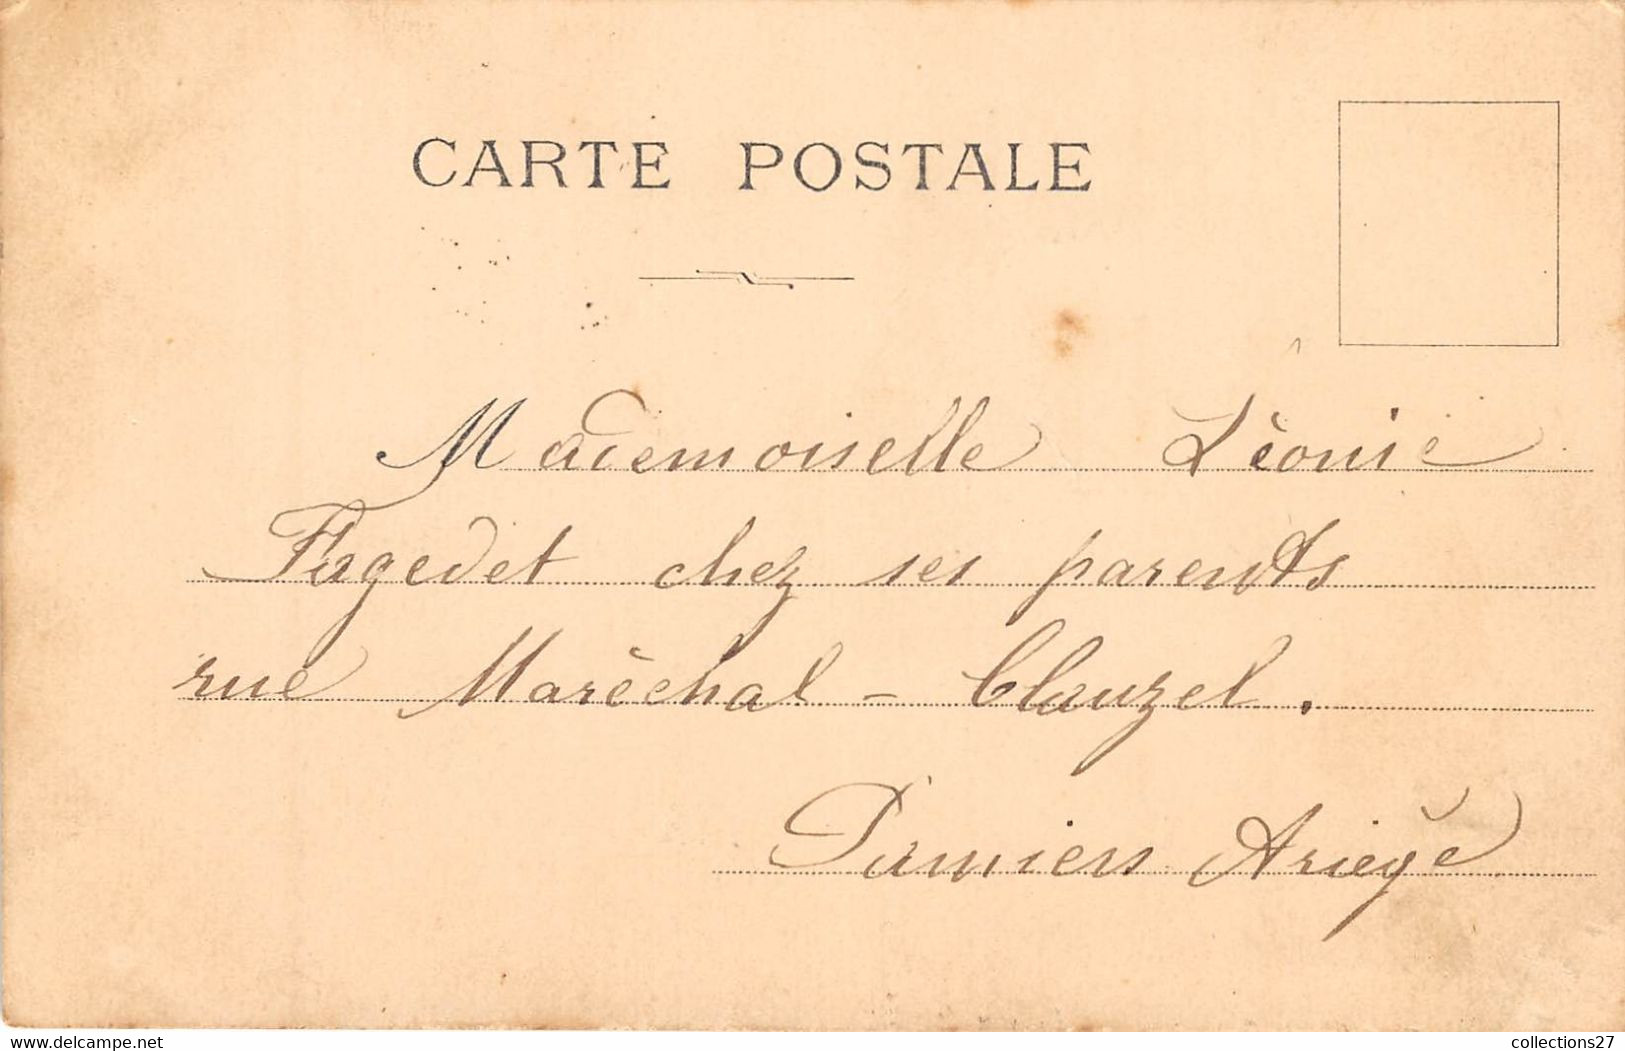 CARTE POSTALE
Mademoiselle Léonie
Fagedet chez ses parents
rue Maréchal - Clauzel.
Pamiers Ariège
www.delcampe.net
collections27